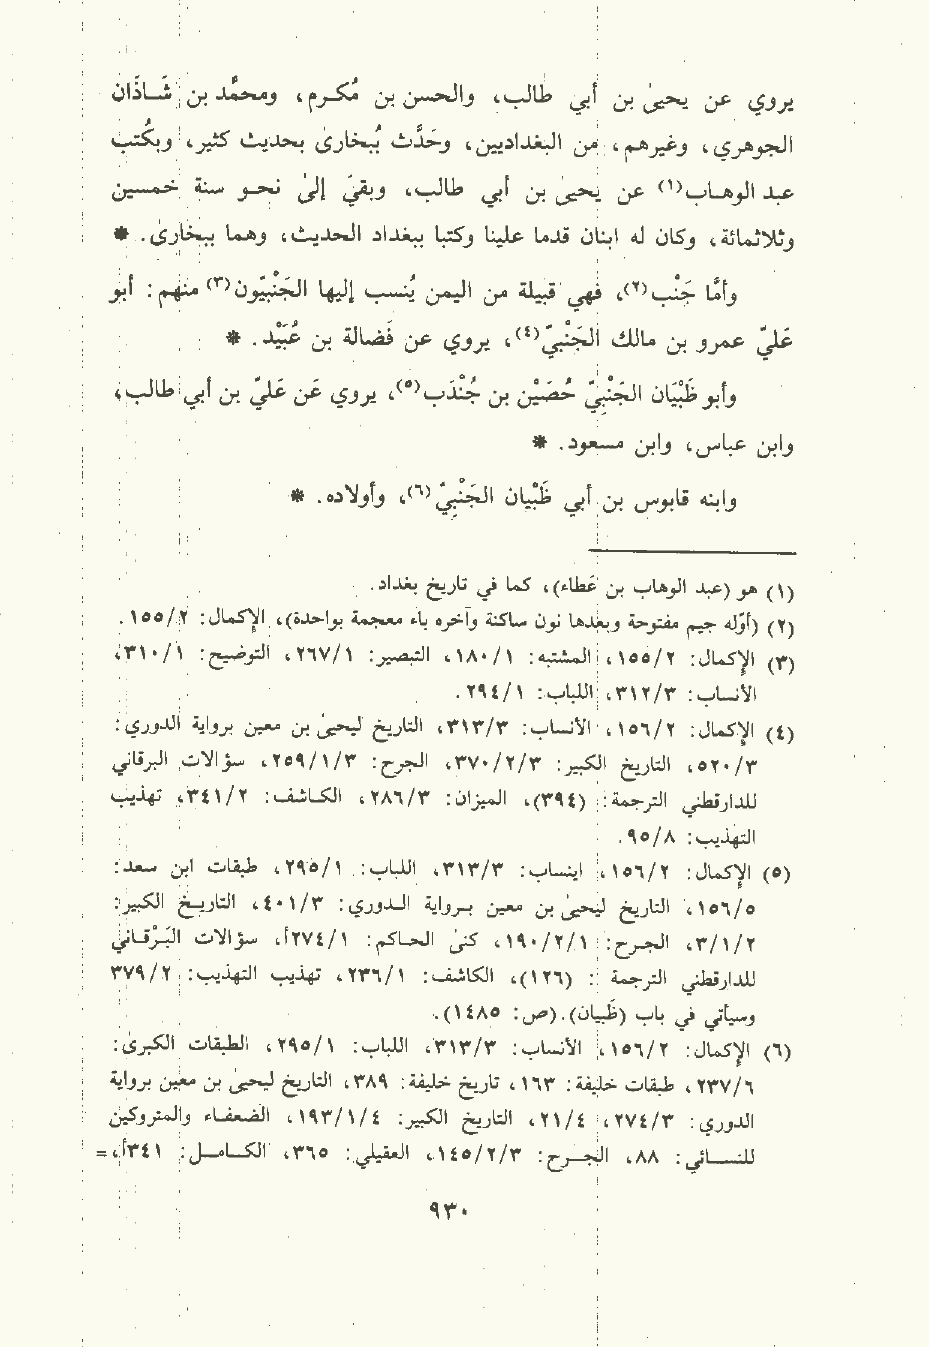 يروي عن يحيىٰ بن أبي طالب، والحسن بن مُكرم، ومحمَّد بن شَاذَان
الجوهري، وغيرهم، من البغداديين، وحَدَّث بُبخارىٰ بحديث كثير، وبكُتب
عبد الوهاب(١) عن يحيىٰ بن أبي طالب، وبقيَ إلىٰ نحو سنة خمسين
وثلاثمائة، وكان له ابنان قدما علينا وكتبا ببغداد الحديث، وهما ببخارىٰ. *
وأمَّا جَنْب(٢)، فهي قبيلة من اليمن يُنسب إليها الجَنْبيّون(٣) منهم: أبو
عَليّ عمرو بن مالك الجَنْبيّ(٤)، يروي عن فَضالة بن عُبَيْد. *
وأبو ظَبْيَان الجَنْبِيّ حُصَيْن بن جُنْدَب(٥)، يروي عَن عَليّ بن أبي طالب،
وابن عباس، وابن مسعود. *
وابنه قابوس بن أبي ظَبْيان الجَنْبِيّ(٦)، وأولاده. *
(١) هو (عبد الوهاب بن عَطاء)، كما في تاريخ بغداد.
(٢) (أوّله جيم مفتوحة وبعدها نون ساكنة وآخره باء معجمة بواحدة)، الإكمال: ١٥٥/٢.
(٣) الإكمال: ١٥٥/٢، المشتبه: ١٨٠/١، التبصير: ٢٦٧/١، التوضيح: ٣١٠/١،
الأنساب: ٣١٢/٣، اللباب: ٢٩٤/١.
(٤) الإكمال: ١٥٦/٢، الأنساب: ٣١٣/٣، التاريخ ليحيىٰ بن معين برواية الدوري:
٥٢٠/٣، التاريخ الكبير: ٣٧٠/٢/٣، الجرح: ٢٥٩/١/٣، سؤالات البرقاني
للدارقطني الترجمة: (٣٩٤)، الميزان: ٢٨٦/٣، الكاشف: ٣٤١/٢، تهذيب
التهذيب: ٩٥/٨.
(٥) الإكمال: ١٥٦/٢، اينساب: ٣١٣/٣، اللباب: ٢٩٥/١، طبقات ابن سعد:
١٥٦/٥، التاريخ ليحيىٰ بن معين برواية الدوري: ٤٠١/٣، التاريخ الكبير:
٣/١/٢، الجرح: ١٩٠/٢/١، كنىٰ الحاكم: ٢٧٤/١أ، سؤالات البَرْقاني
للدارقطني الترجمة : (١٢٦)، الكاشف: ٢٣٦/١، تهذيب التهذيب: ٣٧٩/٢
وسيأتي في باب (ظَبيان).(ص: ١٤٨٥).
(٦) الإكمال: ١٥٦/٢، الأنساب: ٣١٣/٣، اللباب: ٢٩٥/١، الطبقات الكبرىٰ:
٢٣٧/٦، طبقات خليفة: ١٦٣، تاريخ خليفة: ٣٨٩، التاريخ ليحيىٰ بن معين برواية
الدوري: ٢٧٤/٣، ٢١/٤، التاريخ الكبير: ١٩٣/١/٤، الضعفاء والمتروكين
للنسائي: ٨٨، الجرح: ١٤٥/٢/٣، العقيلي: ٣٦٥، الكامل: ٣٤١أ، =
٩٣٠